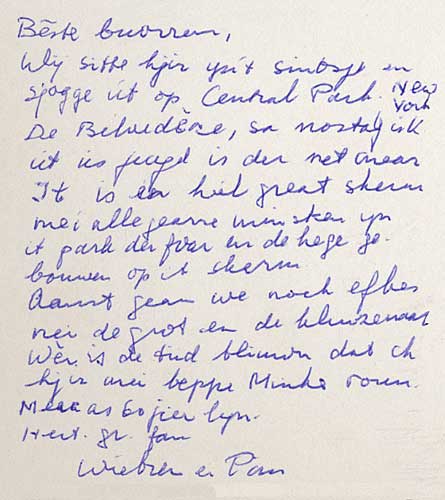 Bêste buorren,
Wij sitte hjir yn't sintsje en
sjogge út op Central Park. New York
De Belvedêre, sa nostalgisk
út ús jeugd is der net mear
It is in hiel great skerm
mei allegearre minsken yn
it park der foar en de hege ge-
bouwen op it skerm.
gean we noch efkes
nei de grot en de kluzenaar
Wêr is de tiid bliuwn dat ik
hjir mei beppe Minke roun.
Mear as 60 jier lyn.
Hert. gr. fan
Wiebren en